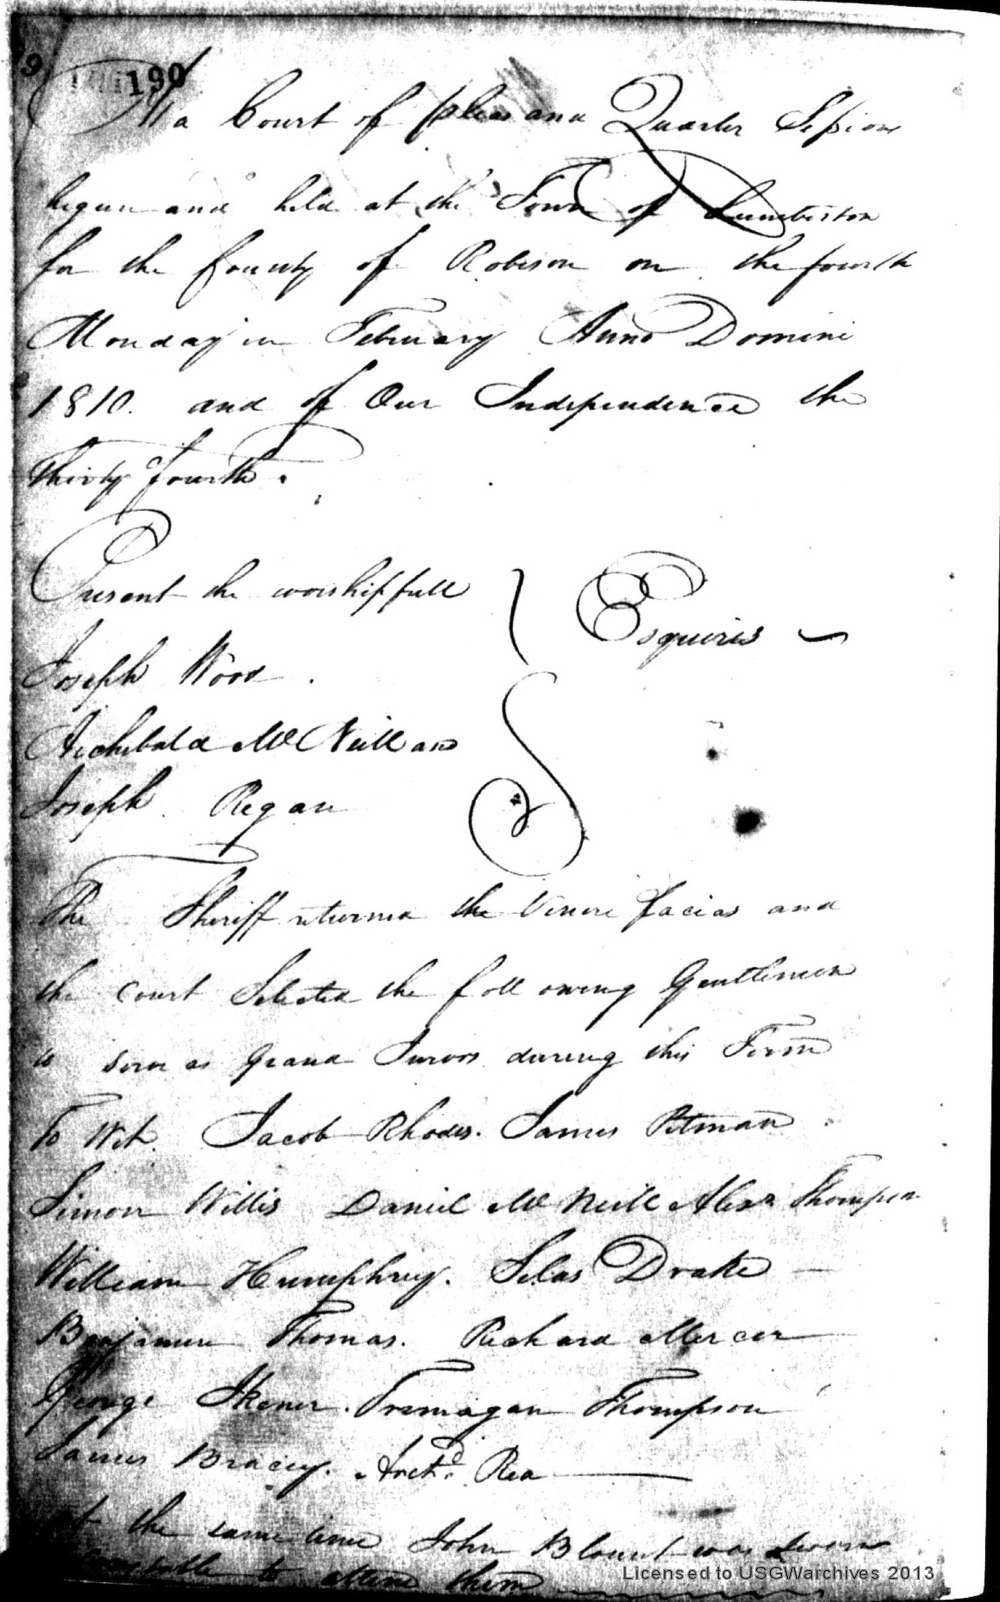 190
At a Court of pleas and Quarter Sessions
begun and held at the Town of Lumberton
for the County of Robison on the fourth
Monday in February Anno Domini
1810. and of Our Independence the
Thirty fourth.
Present the worshipfull
Esquires
Joseph Wood.
Archibald McNeill and
Joseph Regan
The Sheriff returned the Venire facias and
the Court Selected the following Gentlemen
to serve as Grand Jurors during this Term
To Wit. Jacob Rhodes. James Pitman
Simon Willis Daniel McNeill Alexr Thompson
William Humphrey. Silas Drake
Benjamin Thomas. Richard Mercer
George Ikener. Tremagan Thompson
James Bracey. Archd. Rea
at the same time John Blount was sworn
Constable to attend them
Licensed to USGWarchives 2013